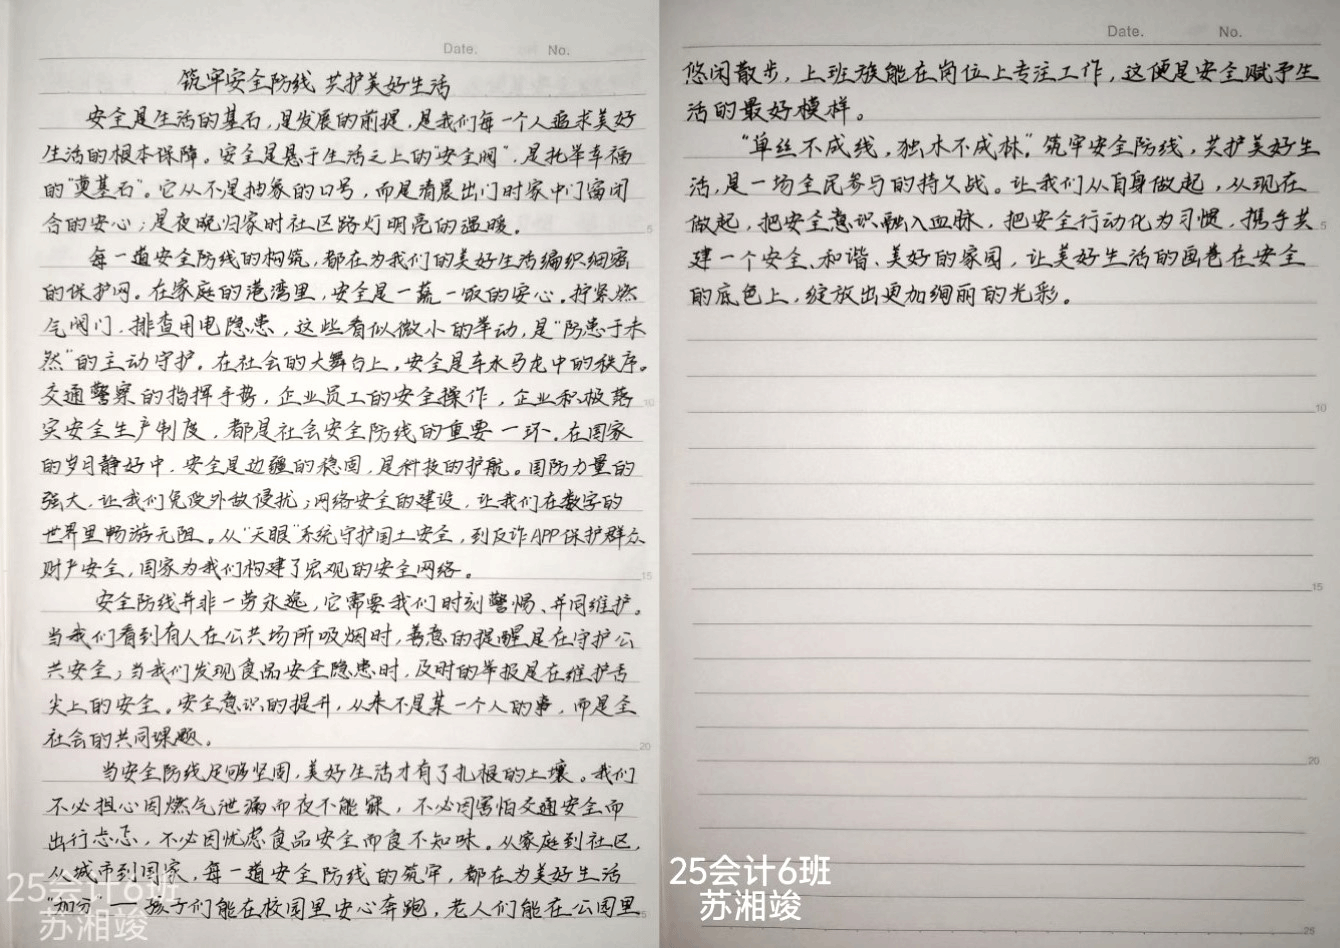 Date. No.
筑牢安全防线 共护美好生活
安全是生活的基石,是发展的前提,是我们每一个人追求美好
生活的根本保障。安全是悬于生活之上的"安全阀",是托举幸福
的"奠基石"。它从不是抽象的口号,而是清晨出门时家中门窗闭
合的安心;是夜晚归家时社区路灯明亮的温暖。
每一道安全防线的构筑,都在为我们的美好生活编织细密
的保护网。在家庭的港湾里,安全是一蔬一饭的安心。拧紧燃
气阀门、排查用电隐患,这些看似微小的举动,是"防患于未
然"的主动守护。在社会的大舞台上,安全是车水马龙中的秩序。
交通警察的指挥手势,企业员工的安全操作,企业积极落
实安全生产制度,都是社会安全防线的重要一环。在国家
的岁月静好中,安全是边疆的稳固,是科技的护航。国防力量的
强大,让我们免受外敌侵扰;网络安全的建设,让我们在数字的
世界里畅游无阻。从"天眼"系统守护国土安全,到反诈APP保护群众
财产安全,国家为我们构建了宏观的安全网络。
安全防线并非一劳永逸,它需要我们时刻警惕、共同维护。
当我们看到有人在公共场所吸烟时,善意的提醒是在守护公
共安全;当我们发现食品安全隐患时,及时的举报是在维护舌
尖上的安全。安全意识的提升,从来不是某一个人的事,而是全
社会的共同课题。
当安全防线足够坚固,美好生活才有了扎根的土壤。我们
不必担心因燃气泄漏而夜不能寐,不必因害怕交通安全而
出行忐忑,不必因忧虑食品安全而食不知味。从家庭到社区,
从城市到国家,每一道安全防线的筑牢,都在为美好生活
"加分"——孩子们能在校园里安心奔跑,老人们能在公园里
25会计6班
苏湘竣
Date. No.
悠闲散步,上班族能在岗位上专注工作,这便是安全赋予生
活的最好模样。
"单丝不成线,独木不成林。"筑牢安全防线,共护美好生
活,是一场全民参与的持久战。让我们从自身做起,从现在
做起,把安全意识融入血脉,把安全行动化为习惯,携手共
建一个安全、和谐、美好的家园,让美好生活的画卷在安全
的底色上,绽放出更加绚丽的光彩。
25会计6班
苏湘竣